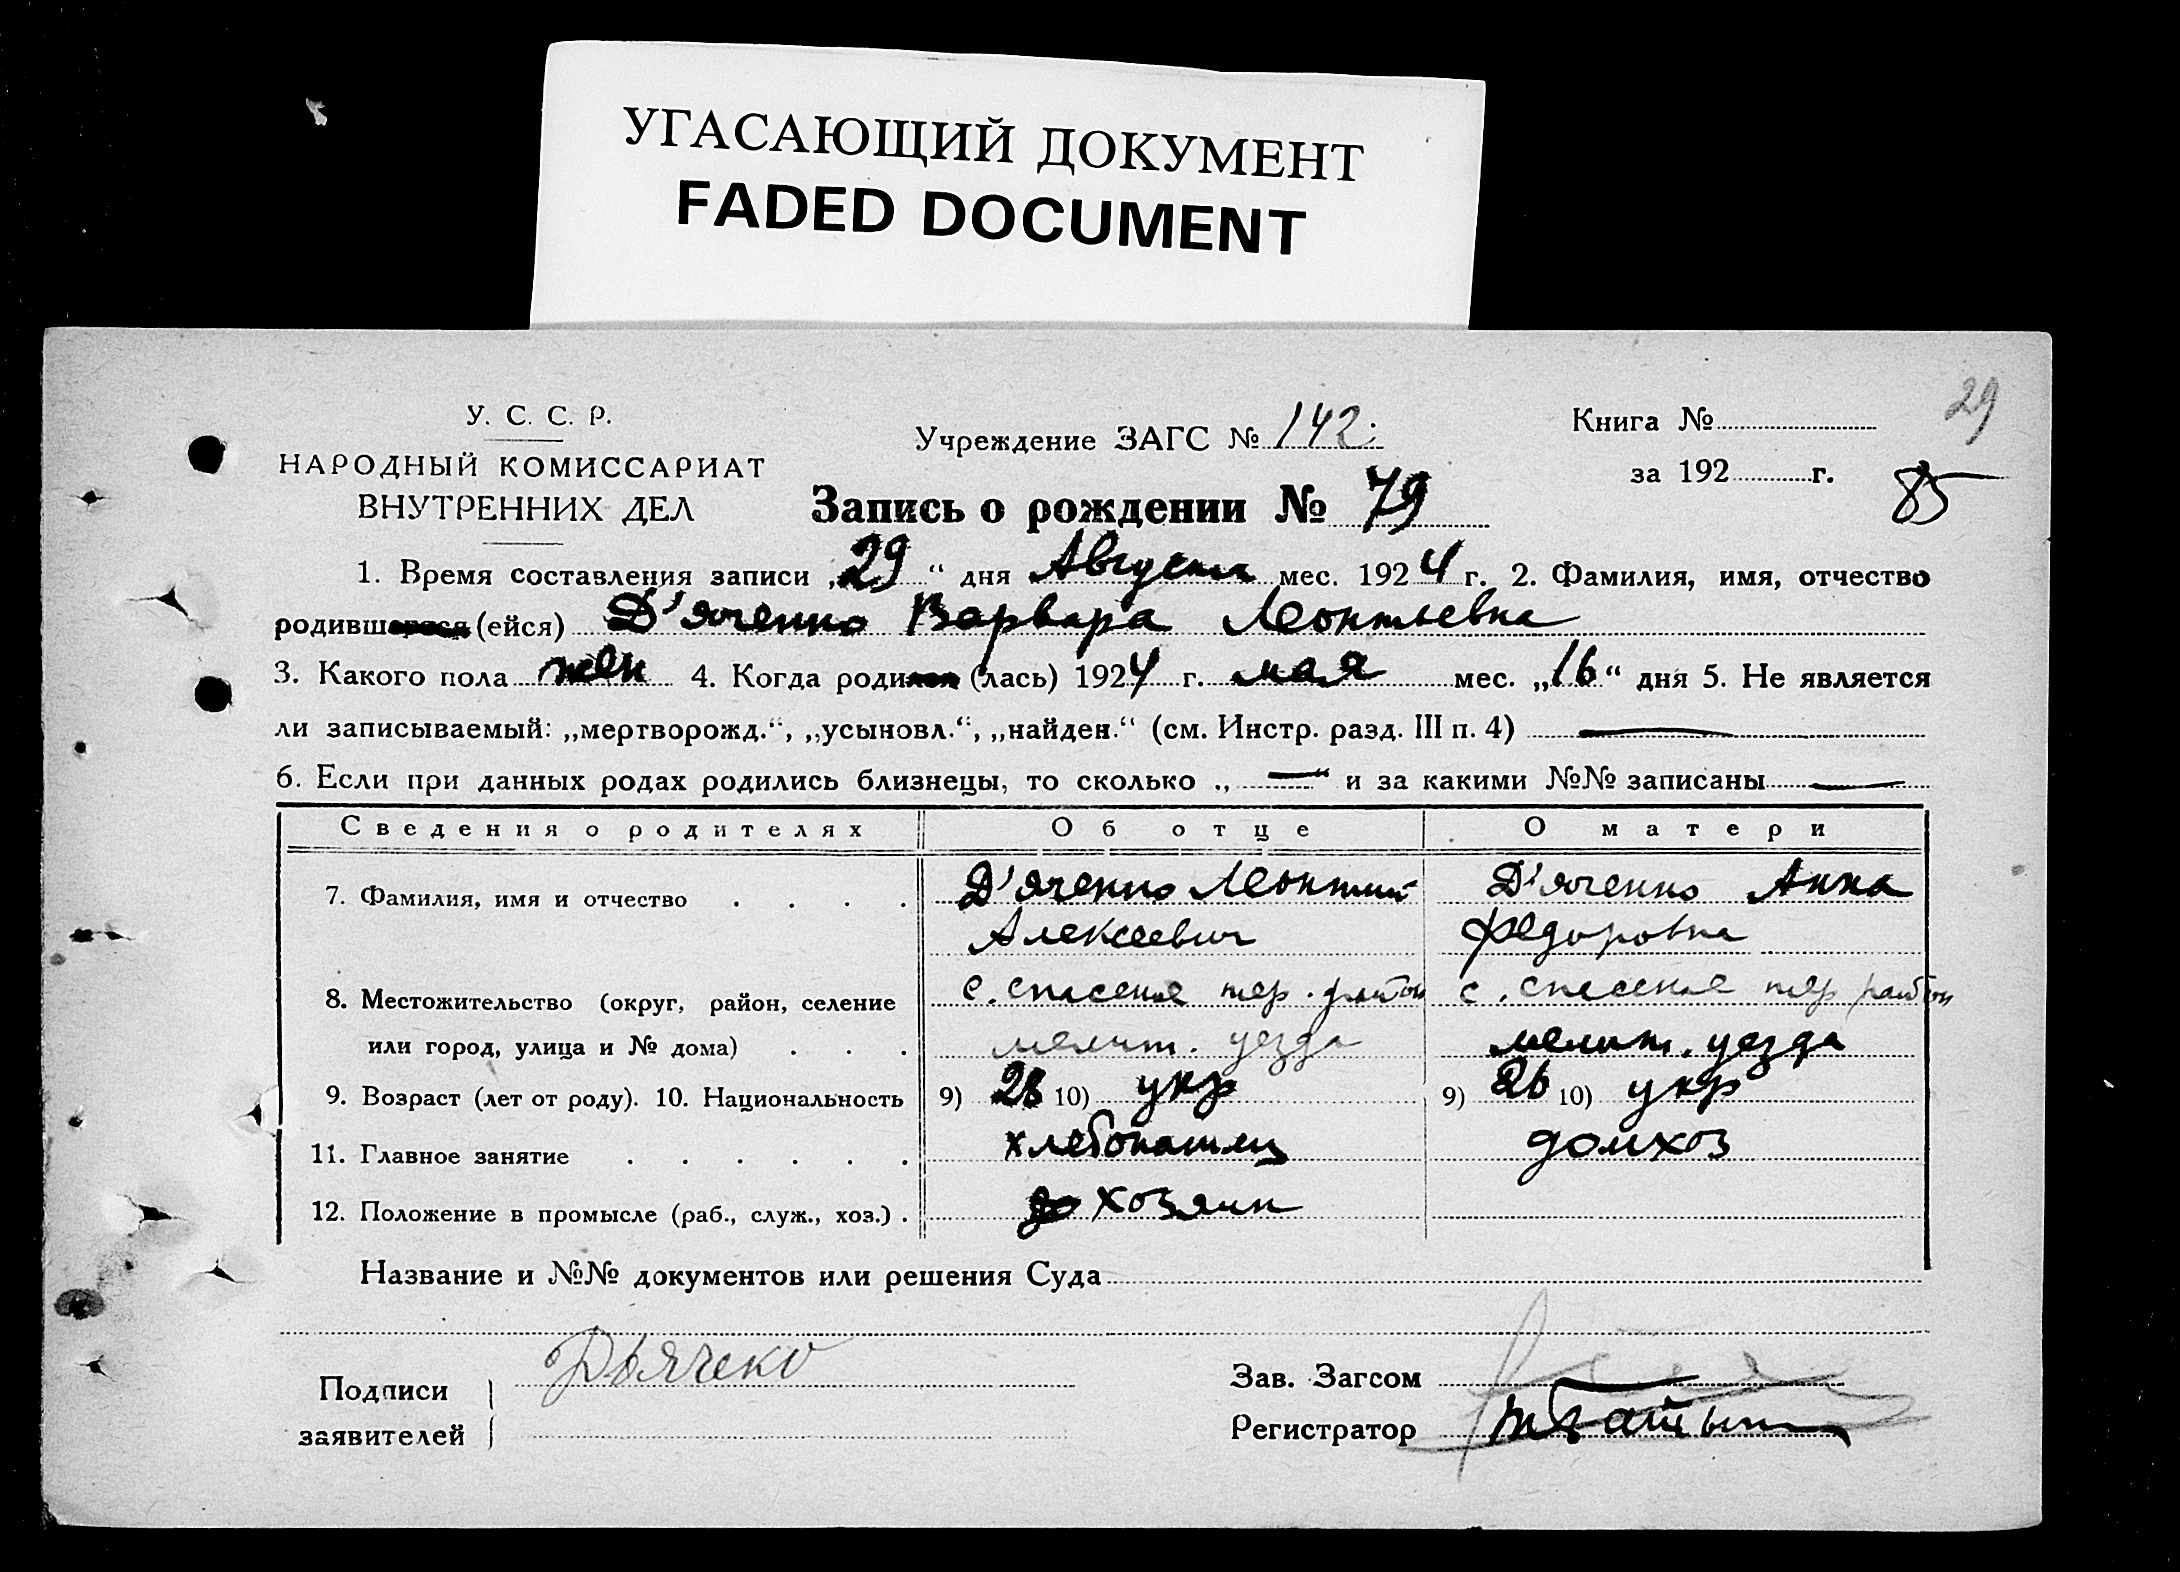 УГАСАЮЩИЙ ДОКУМЕНТ
FADED DOCUMENT
29
У. С. С. Р.
Учреждение ЗАГС № 142.
Книга №
НАРОДНЫЙ КОМИССАРИАТ
за 192 г.
85
ВНУТРЕННИХ ДЕЛ
Запись о рождении № 79
1. Время составления записи „29“ дня Августа мес. 1924 г. 2. Фамилия, имя, отчество
родивш (ейся) Д'яченко Варвара Леонтьевна
3. Какого пола жен 4. Когда роди (лась) 1924 г. мая мес. „16“ дня 5. Не является
ли записываемый: „мертворожд.“, „усыновл.“, „найден.“ (см. Инстр. разд. III п. 4) —
6. Если при данных родах родились близнецы, то сколько „—“ и за какими №№ записаны —
Сведения о родителях Об отце О матери
7. Фамилия, имя и отчество . . . . Д'яченко Леонтий Д'яченко Анна
Алексеевич Федоровна
8. Местожительство (округ, район, селение с. спасение тер. район с. спасение тер район
или город, улица и № дома) . . . мелит. уезда мелит. уезда
9. Возраст (лет от роду). 10. Национальность 9) 28 10) укр 9) 26 10) укр
11. Главное занятие . . . . . . хлебопашец домхоз
12. Положение в промысле (раб., служ., хоз.) . хозяин
Название и №№ документов или решения Суда
Подписи Дьячеко
заявителей
Зав. Загсом
Регистратор